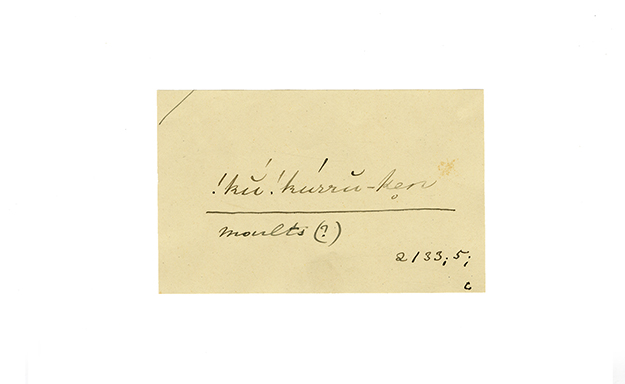 !kŭ́!kúrrŭ-ken̥
moults (?)
2133; 5;
c